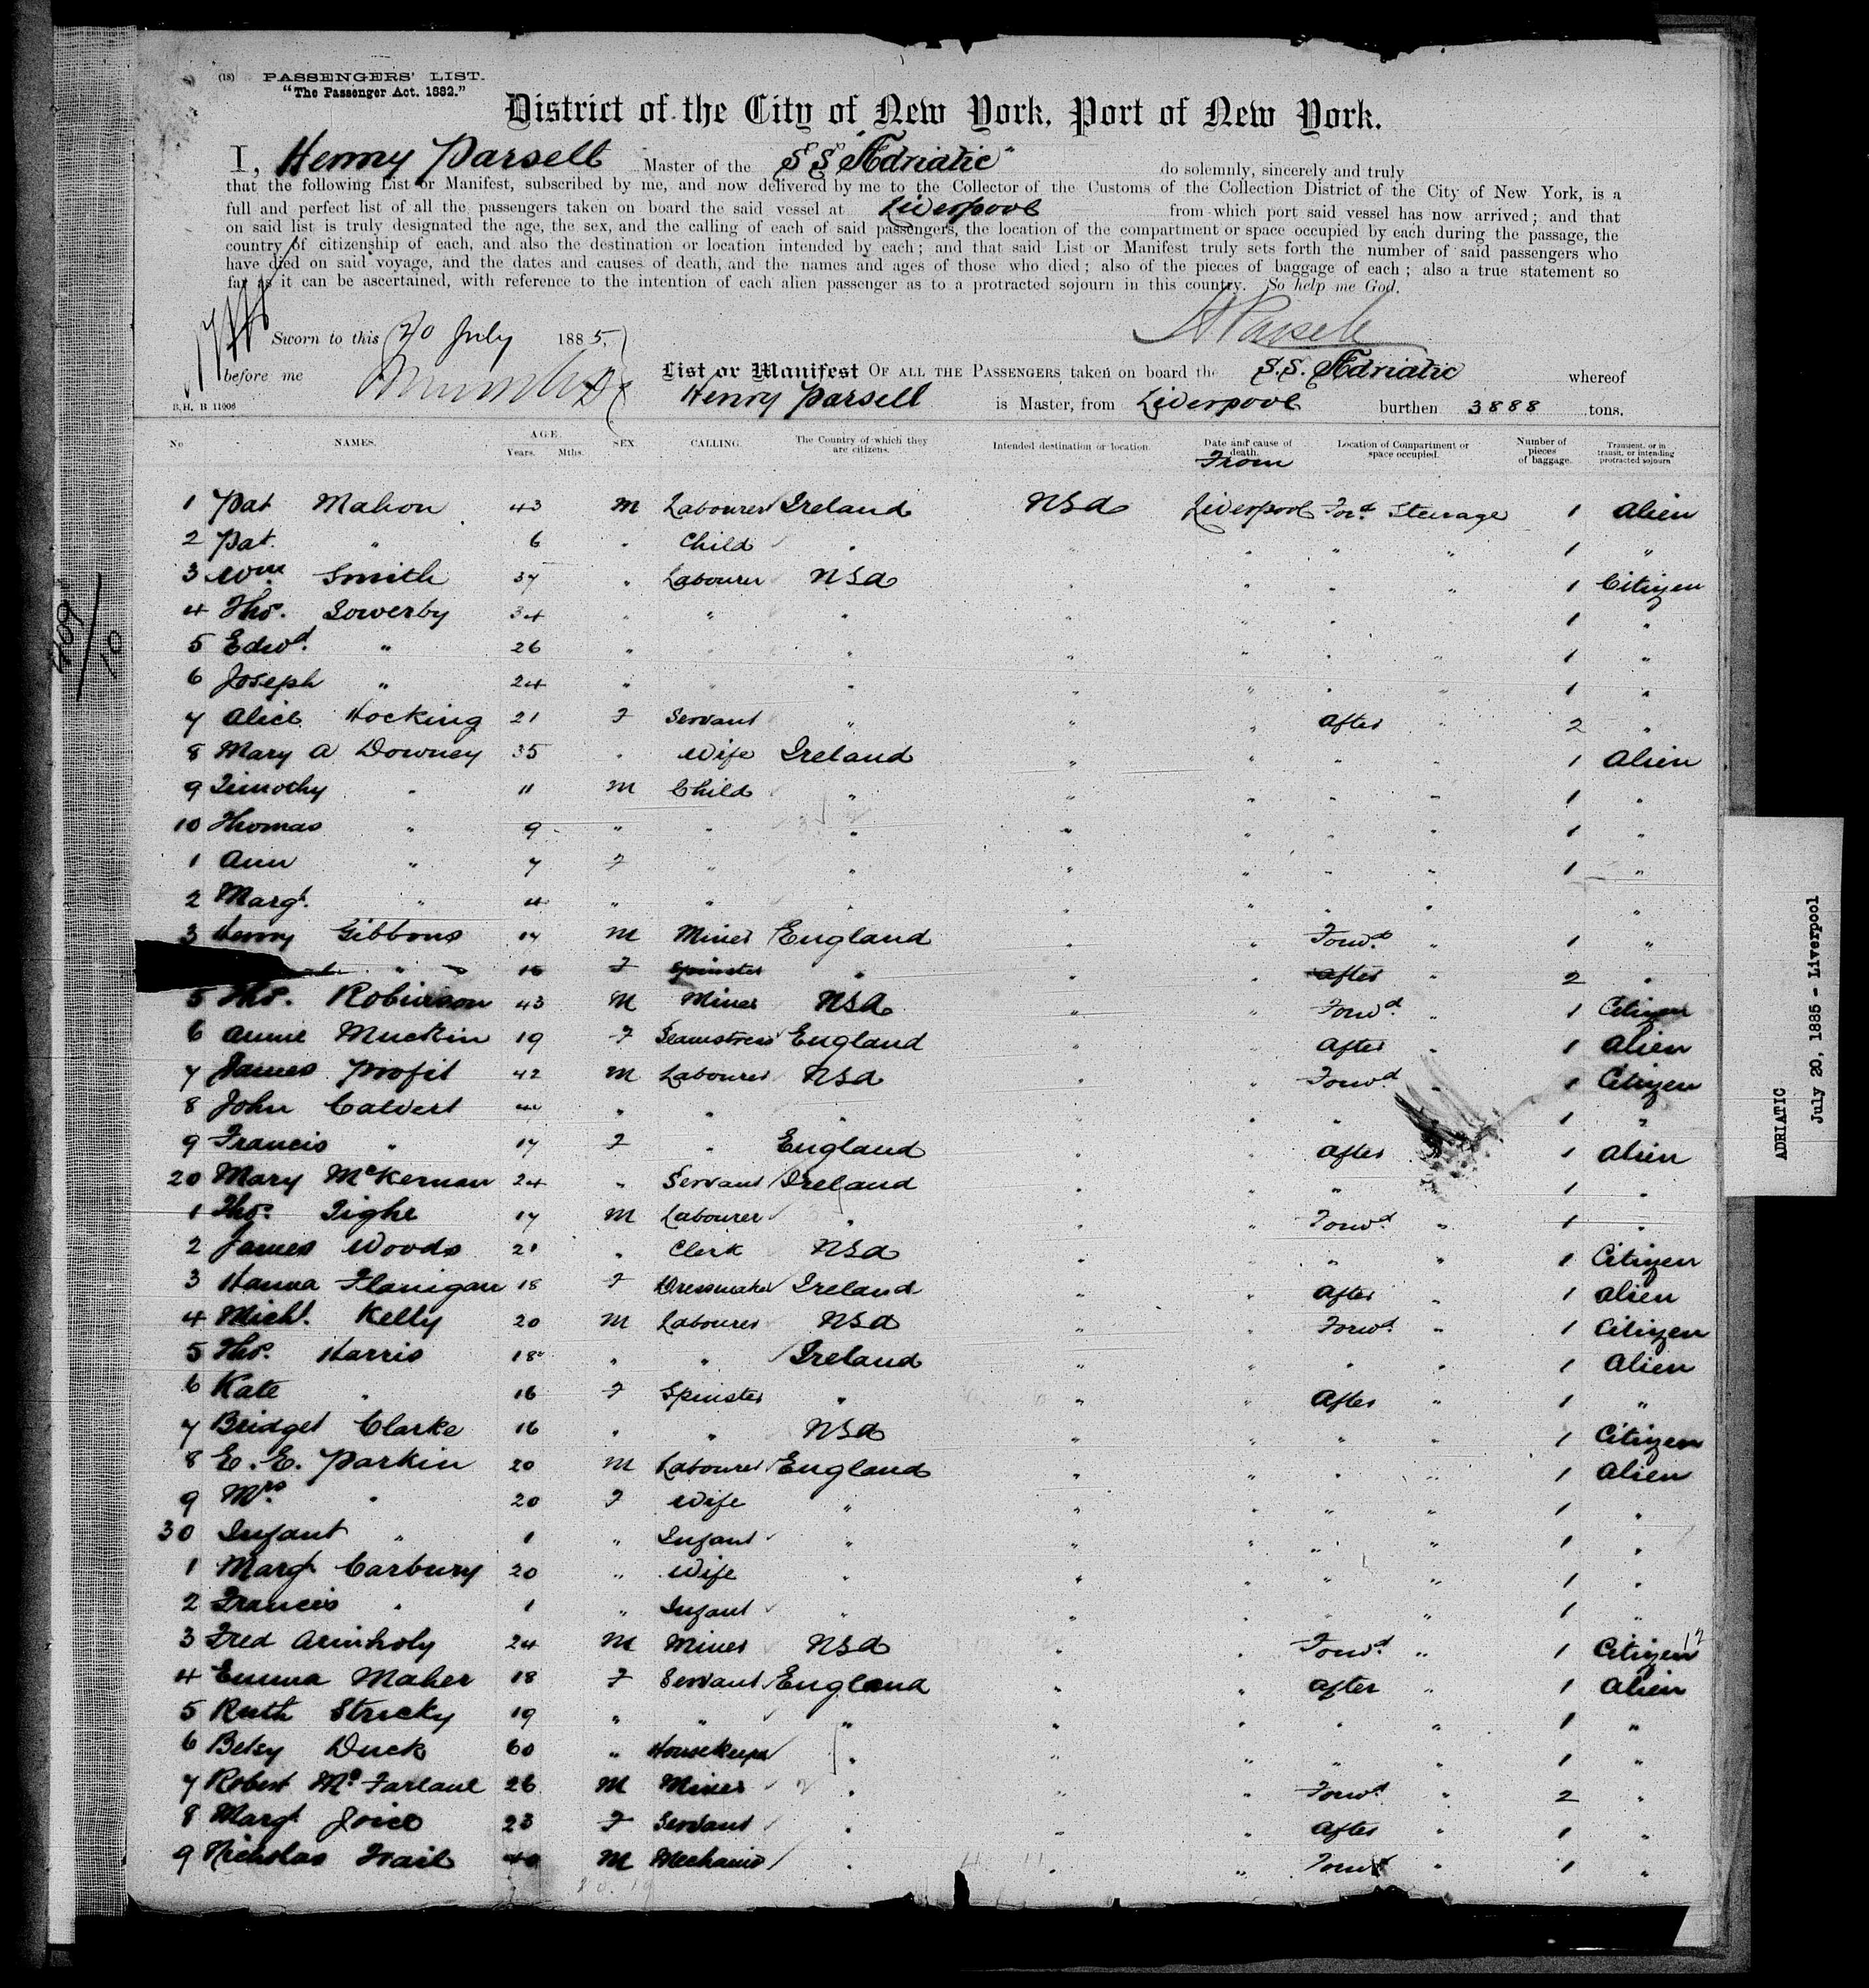 (18) PASSENGERS' LIST.
"The Passenger Act. 1882."
District of the City of New York, Port of New York.
I, Henry Parsell Master of the S S "Adriatic" do solemnly, sincerely and truly
that the following List or Manifest, subscribed by me, and now delivered by me to the Collector of the Customs of the Collection District of the City of New York, is a
full and perfect list of all the passengers taken on board the said vessel at Liverpool from which port said vessel has now arrived; and that
on said list is truly designated the age, the sex, and the calling of each of said passengers, the location of the compartment or space occupied by each during the passage, the
country of citizenship of each, and also the destination or location intended by each; and that said List or Manifest truly sets forth the number of said passengers who
have died on said voyage, and the dates and causes of death, and the names and ages of those who died; also of the pieces of baggage of each; also a true statement so
far as it can be ascertained, with reference to the intention of each alien passenger as to a protracted sojourn in this country. So help me God.
Sworn to this 20 July 1885, H Parsell
before me
List or Manifest OF ALL THE PASSENGERS taken on board the S.S. Adriatic whereof
B.H. B 11006 Henry Parsell is Master, from Liverpool burthen 3888 tons.
No NAMES. AGE. Years. Mths. SEX. CALLING. The Country of which they are citizens. Intended destination or location. Date and cause of death. From Location of Compartment or space occupied. Number of pieces of baggage. Transient, or in transit, or intending protracted sojourn
1 Pat Mahon 43 M Labourer Ireland USA Liverpool For.d Steerage 1 Alien
2 Pat " 6 " Child " " " " " 1 "
3 Wm Smith 37 " Labourer USA " " " " 1 Citizen
4 Tho.s Sowerby 34 " " " " " " 1 "
5 Edw.d " 26 " " " " " " 1 "
6 Joseph " 24 " " " " " " 1 "
7 Alice Hocking 21 F Servant " " " After " 2 "
8 Mary A Downey 35 " Wife Ireland " " " 1 Alien
9 Timothy " 11 M Child " " " " " 1 "
10 Thomas " 9 " " " " " " " 1 "
1 Ann " 7 F " " " " " " 1 "
2 Marg.t " 4 " " " " " " " "
3 Henry Gibbons 17 M Miner England " " Forw.d " 1 "
" F Spinster " " " After " 2 "
5 Tho.s Robinson 43 M Miner USA " " Forw.d " 1 Citizen
6 Annie Muckin 19 F Seamstress England " " After " 1 Alien
7 James Profit 42 M Labourer USA " " Forw.d " 1 Citizen
8 John Calvert " " " " " " 1 "
9 Francis " 17 F " England " " After 1 Alien
20 Mary McKernan 24 " Servant Ireland " " " 1 "
1 Tho.s Tighe 17 M Labourer " " " Forw.d " 1 "
2 James Woods 21 " Clerk USA " " " " 1 Citizen
3 Hanna Flanigan 18 F Dressmaker Ireland " " After " 1 Alien
4 Mich.l Kelly 20 M Labourer USA " " Forw.d " 1 Citizen
5 Tho.s Harris 18 " " Ireland " " " " 1 Alien
6 Kate " 16 F Spinster " " " After " 1 "
7 Bridget Clarke 16 " " USA " " " " 1 Citizen
8 E. E. Parkin 20 M Labourer England " " " " 1 Alien
9 Mrs " 20 F Wife " " " " " 1 "
30 Infant " 1 " Infant " " " " " 1 "
1 Marg.t Carbury 20 " Wife " " " " " 1 "
2 Francis " 1 " Infant " " " " " 1 "
3 Fred 24 M Miner USA " " Forw.d " 1 Citizen
4 Emma Maher 18 F Servant England " " After " 1 Alien
5 Ruth Stricky 19 " " " " " " " 1 "
6 Betsy Duck 60 " Housekeeper " " " " " 1 "
7 Robert McFarlane 26 M Miner " " " Forw.d " 2 "
8 Marg.t Joice 23 F Servant " " " After " 1 "
9 Nicholas Trail 40 M Mechanic " " " Forw.d " 1 "
409/10
ADRIATIC
July 20, 1885 - Liverpool